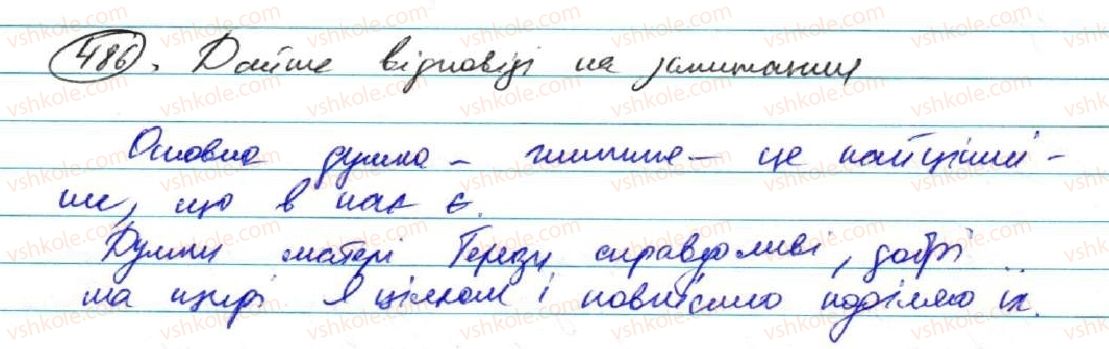 486. Дайте відповіді на запитання
Основна думка – життя – це найцінні-
ше, що в нас є.
Думки матері Терези справедливі, добрі
та щирі Я цілком і повністю поділяю їх.